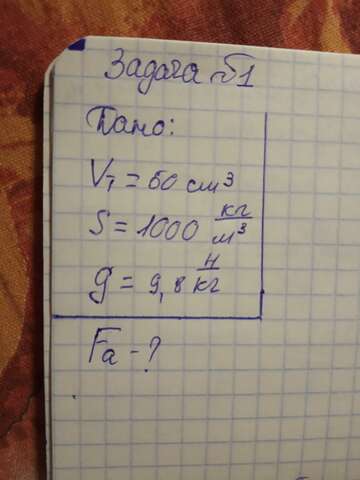 Задача №1
Дано:
Vт = 60 см³
S = 1000 кг/м³
g = 9,8 Н/кг
Fa - ?